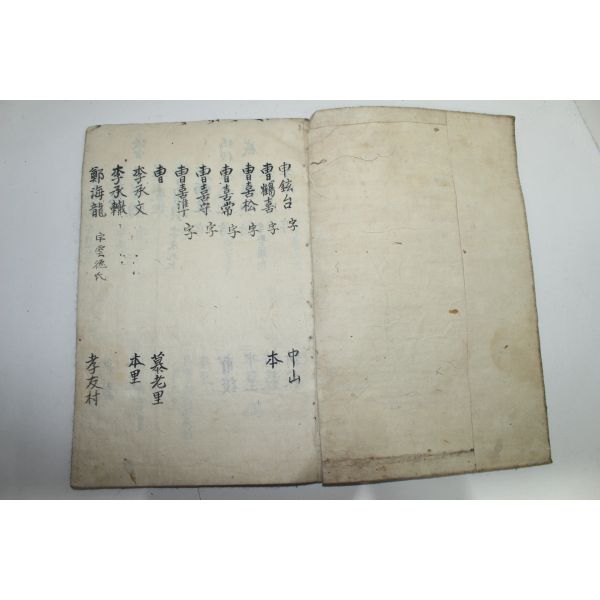 申鉉台 字 中山
曺鶴喜 字 本
曺喜松 字
曺喜常 字
曺喜守 字
曺喜準 字
曺 慕老里
李承文 本里
李承轍
鄭海龍 字雲德氏 孝友村